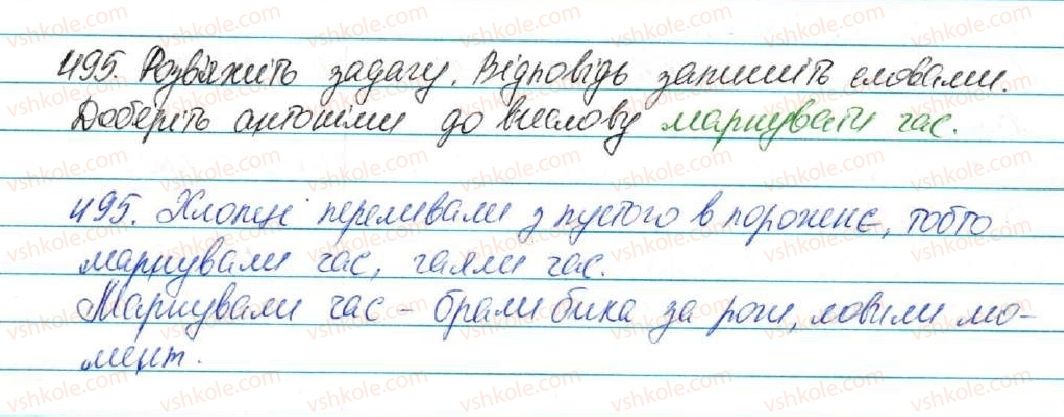 495. Розв'яжіть задачу. Відповідь запишіть словами.
Доберіть антоніми до вислову марнувати час.
495. Хлопці переливали з пустого в порожнє, тобто
марнували час, гаяли час.
Марнували час – брали бика за роги, ловили мо-
мент.